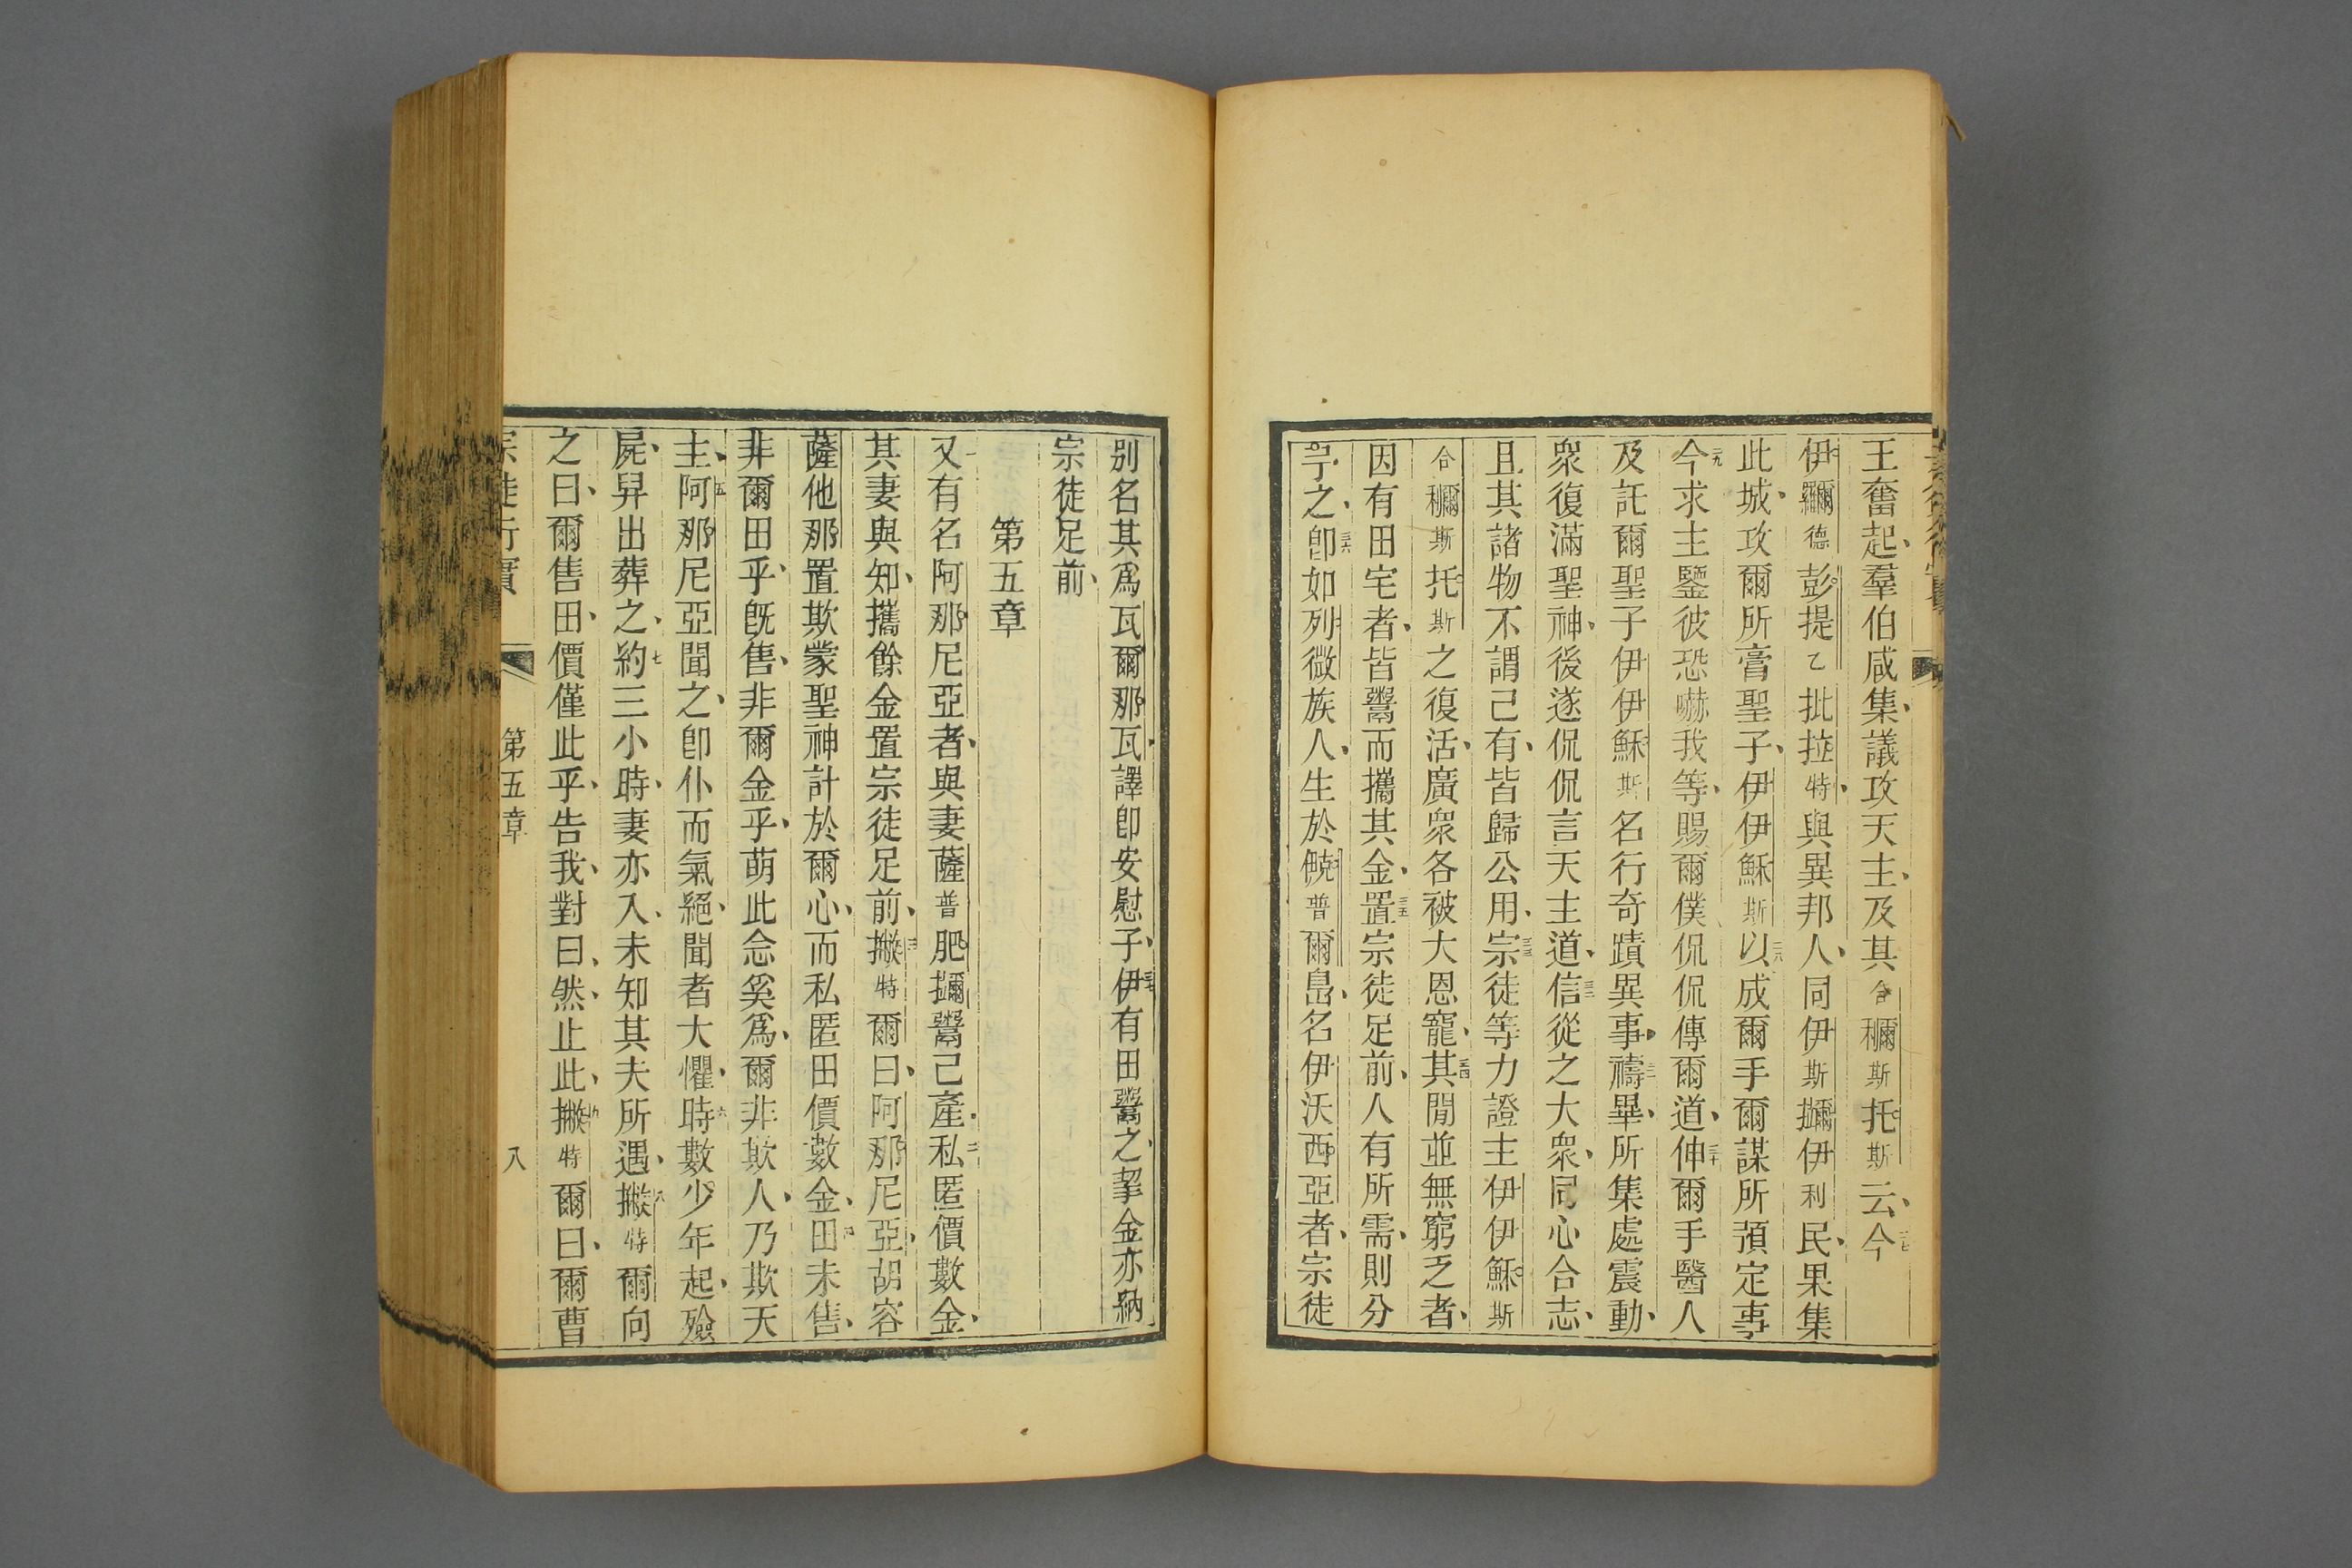 王奮起、羣伯咸集、議攻天主、及其合𥡝斯托斯云、二七今
伊𦆯德彭提乙批拉特、與異邦人、同伊斯㺔伊利民、果集
此城、攻爾所膏聖子、伊伊穌斯二八以成爾手爾謀所預定事、
二九今求主鑒彼恐嚇我等、賜爾僕侃侃傳爾道、三十伸爾手醫人
及託爾聖子伊伊穌斯名行奇蹟異事、三一禱畢、所集處震動、
衆復滿聖神、後遂侃侃言天主道、三二信從之大衆、同心合志、
且其諸物不謂己有、皆歸公用、三三宗徒等力證主伊伊穌斯
合𥡝斯托斯之復活、廣衆各被大恩寵、三四其閒並無窮乏者、
因有田宅者、皆鬻而攜其金、三五置宗徒足前、人有所需、則分
予之、三六卽如列微族人、生於普爾島、名伊沃西亞者、宗徒
別名其爲瓦爾那瓦、譯卽安慰子、三七伊有田鬻之、挈金亦納
宗徒足前、
第五章
一又有名阿那尼亞者、與妻薩普肥鬻己產、二私匿價數金、
其妻與知、攜餘金置宗徒足前、三撇特爾曰、阿那尼亞、胡容
薩他那置欺蒙聖神計於爾心、而私匿田價數金、四田未售、
非爾田乎、旣售、非爾金乎、萌此念奚爲、爾非欺人、乃欺天
主、五阿那尼亞聞之、卽仆而氣絕、聞者大懼、六時數少年起、殮
屍、舁出葬之、七約三小時、妻亦入、未知其夫所遇、八撇特爾向
之曰、爾售田、價僅此乎、告我、對曰、然、止此、九撇特爾曰、爾曹
宗徒行實 第五章 八